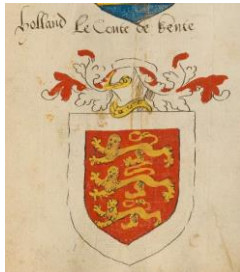 holland Le Conte de Kente